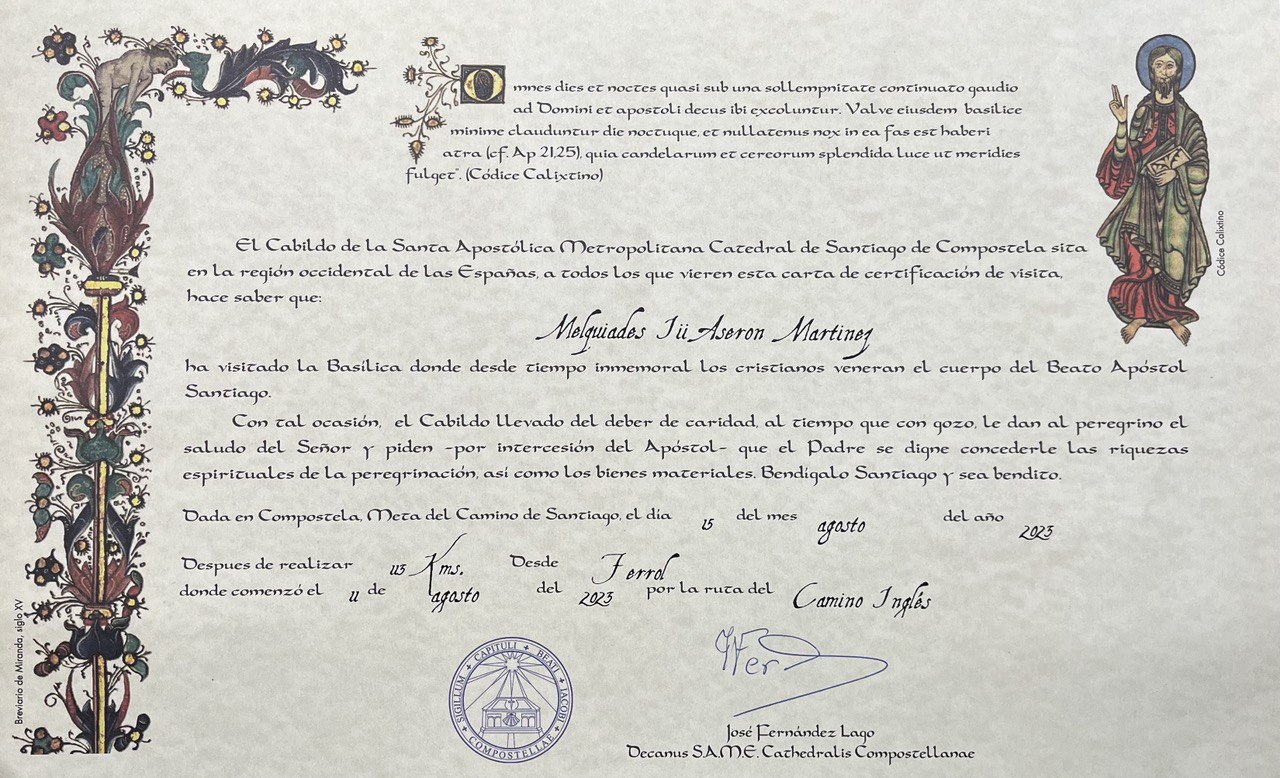 Omnes dies et noctes quasi sub una sollempnitate continuato gaudio
ad Domini et apostoli decus ibi excoluntur. Valve eiusdem basilice
minime clauduntur die noctuque, et nullatenus nox in ea fas est haberi
atra (cf. Ap 21,25), quia candelarum et cereorum splendida luce ut meridies
fulget". (Códice Calixtino)
Códice Calixtino
El Cabildo de la Santa Apostólica Metropolitana Catedral de Santiago de Compostela sita
en la región occidental de las Españas, a todos los que vieren esta carta de certificación de visita,
hace saber que:
Melquiades Iii Aseron Martinez
ha visitado la Basílica donde desde tiempo inmemoral los cristianos veneran el cuerpo del Beato Apóstol
Santiago.
Con tal ocasión, el Cabildo llevado del deber de caridad, al tiempo que con gozo, le dan al peregrino el
saludo del Señor y piden -por intercesión del Apóstol- que el Padre se digne concederle las riquezas
espirituales de la peregrinación, así como los bienes materiales. Bendígalo Santiago y sea bendito.
Dada en Compostela, Meta del Camino de Santiago, el día 15 del mes agosto del año 2023
Despues de realizar 113 Kms. Desde Ferrol
donde comenzó el 11 de agosto del 2023 por la ruta del Camino Inglés
Breviario de Miranda, siglo XV
SIGILLUM CAPITULI BEATI JACOBI COMPOSTELLAE
José Fernández Lago
Decanus S.A.M.E. Cathedralis Compostellanae